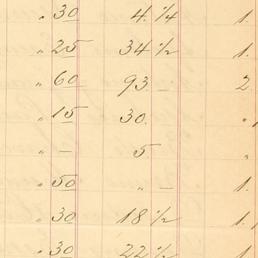 " 30 4 1/4 1.
" 25 34 1/2 1.
" 60 93 – 2
" 15 30. "
" – 5 "
" 50 " – 1.
" 30 18 1/2 1.
" 30 22 1/2 1